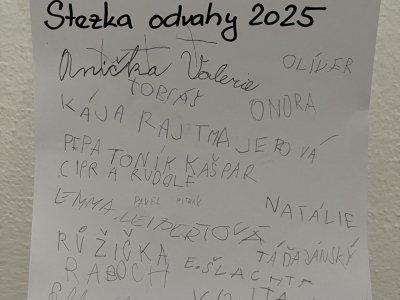 Stezka odvahy 2025
Anička Valerie OLÍVER
TOBIÁŠ ONDRA
KÁJA RAJTMAJEROVÁ
PEPA TONÍK KAŠPAR
CIPR A RUDOLF
EMMA.LEIBERTOVÁ PAVEL NATÁLIE
RŮŽIČKA TÁĎA
RADOCH E.ŠLACHTA